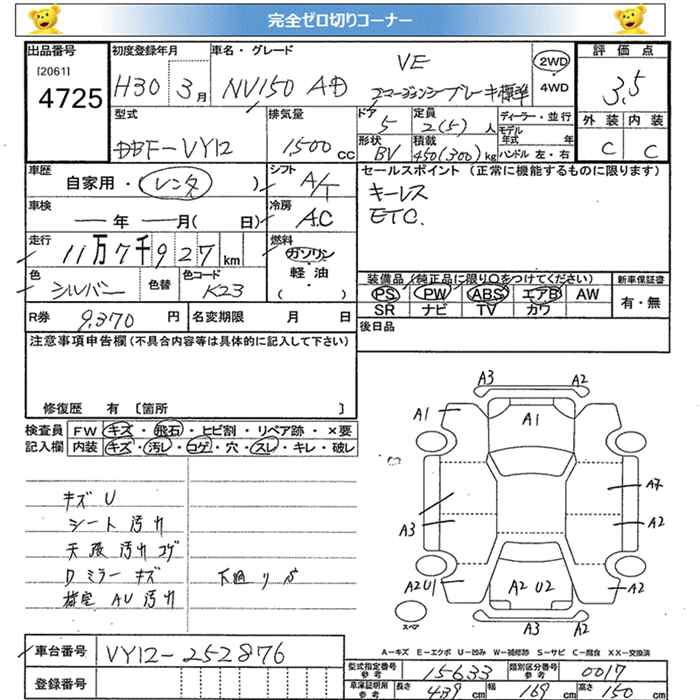 完全ゼロ切りコーナー
出品番号
[2061]
4725
初度登録年月
H30 3月
車名・グレード
NV150 AD VE
エマージェンシーブレーキ標準
2WD
4WD
評価点
3.5
外装 内装
C C
型式
DBF-VY12
排気量
1,500cc
ドア
5
定員
2(5)人
形状
BV
積載
450(300)kg
ディーラー・並行
モデル年式 年
ハンドル 左・右
車歴
自家用・(レンタ)
シフト
A/T
車検
年 月( 日)
冷房
A.C
走行
11万7千927km
燃料
ガソリン
軽油
( )
色
シルバー
色替
色コード
K23
R券 9,370円
名変期限 月 日
セールスポイント(正常に機能するものに限ります)
キーレス
ETC.
装備品(純正品に限り○をつけてください)
新車保証書
PS PW ABS エアB AW
SR ナビ TV カワ
有・無
後日品
注意事項申告欄(不具合内容等は具体的に記入して下さい)
修復歴 有 〔箇所 〕
検査員記入欄
FW キズ・飛石・ヒビ割・リペア跡・×要
内装 キズ・汚レ・コゲ・穴・スレ・キレ・破レ
キズ U
シート 汚れ
天張 汚れ コゲ
ミラー キズ
下廻りサ
汚れ
A3 A2
A1 A1
A7
A3 A2
A2U1 A2 U2 A2
A3 A2
スペア
A-キズ E-エクボ U-凹み W-補修跡 S-サビ C-腐食 XX-交換済
車台番号
VY12-252876
登録番号
型式指定番号 参考
15633
類別区分番号 参考
0017
車庫証明用 参考
長さ 439cm 幅 169cm 高さ 150cm